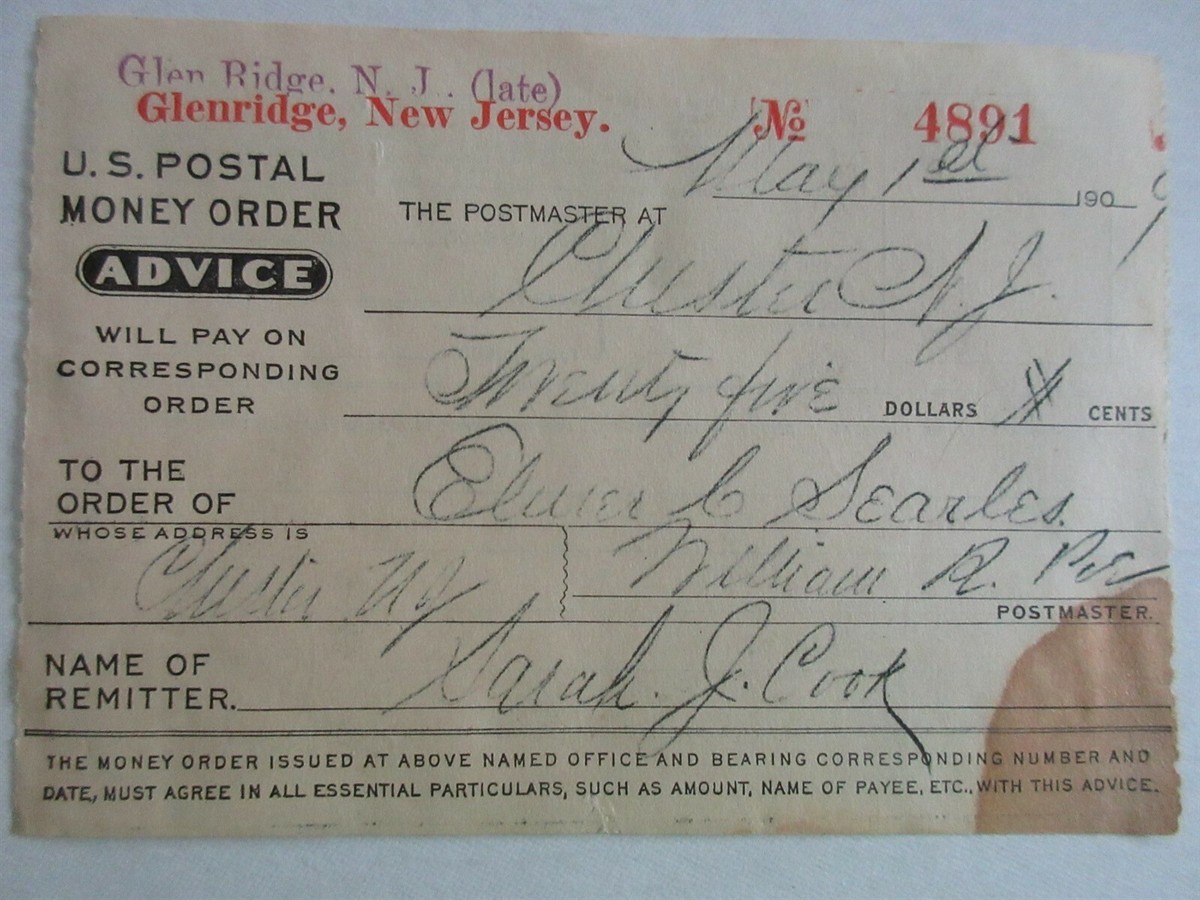 Glen Ridge, N. J. (late)
Glenridge, New Jersey. № 4891
U.S. POSTAL
MONEY ORDER
ADVICE
WILL PAY ON
CORRESPONDING
ORDER
May 1st 1909
THE POSTMASTER AT
Chester N.J.
Twenty five DOLLARS CENTS
TO THE
ORDER OF Elmer C Searles
WHOSE ADDRESS IS
Chester NJ William R.
POSTMASTER.
NAME OF
REMITTER. Sarah. J. Cook
THE MONEY ORDER ISSUED AT ABOVE NAMED OFFICE AND BEARING CORRESPONDING NUMBER AND
DATE, MUST AGREE IN ALL ESSENTIAL PARTICULARS, SUCH AS AMOUNT, NAME OF PAYEE, ETC., WITH THIS ADVICE.